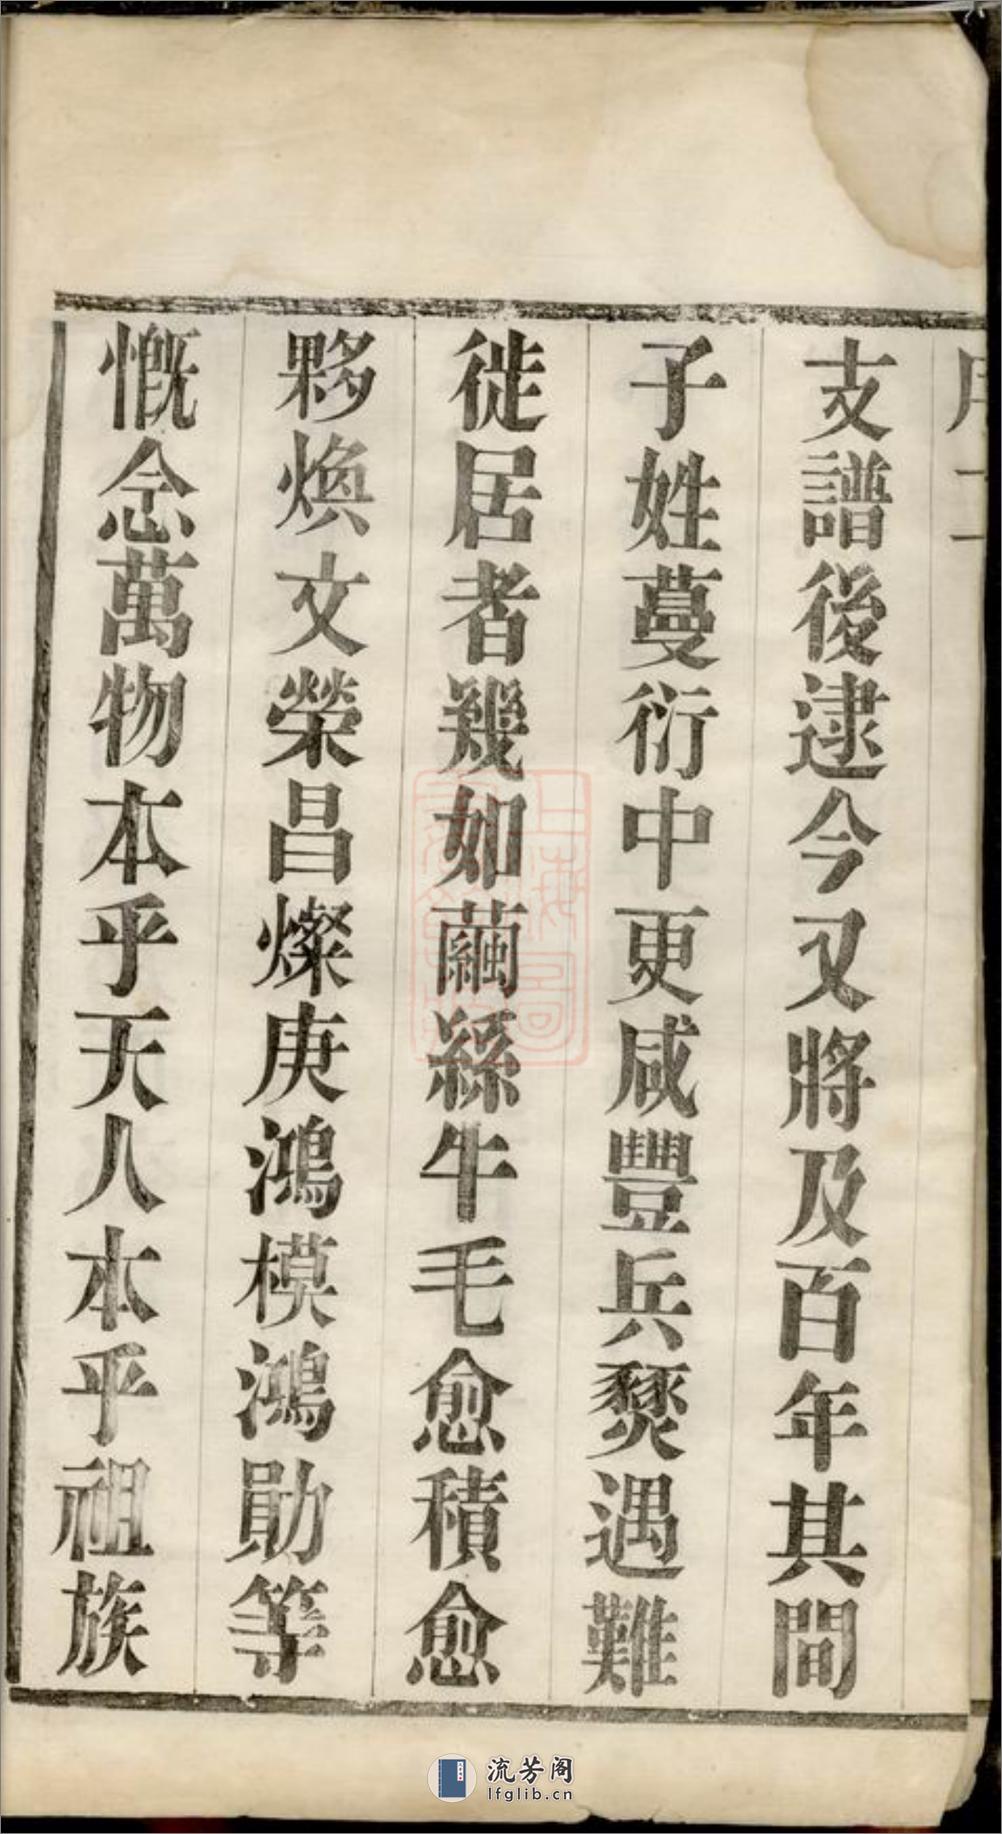 支譜後逮今又將及百年其間
子姓蔓衍中更咸豐兵燹遇難
徙居者幾如繭絲牛毛愈積愈
夥煥文榮昌燦庚鴻模鴻勛等
慨念萬物本乎天人本乎祖族
流芳阁
lfglib.cn